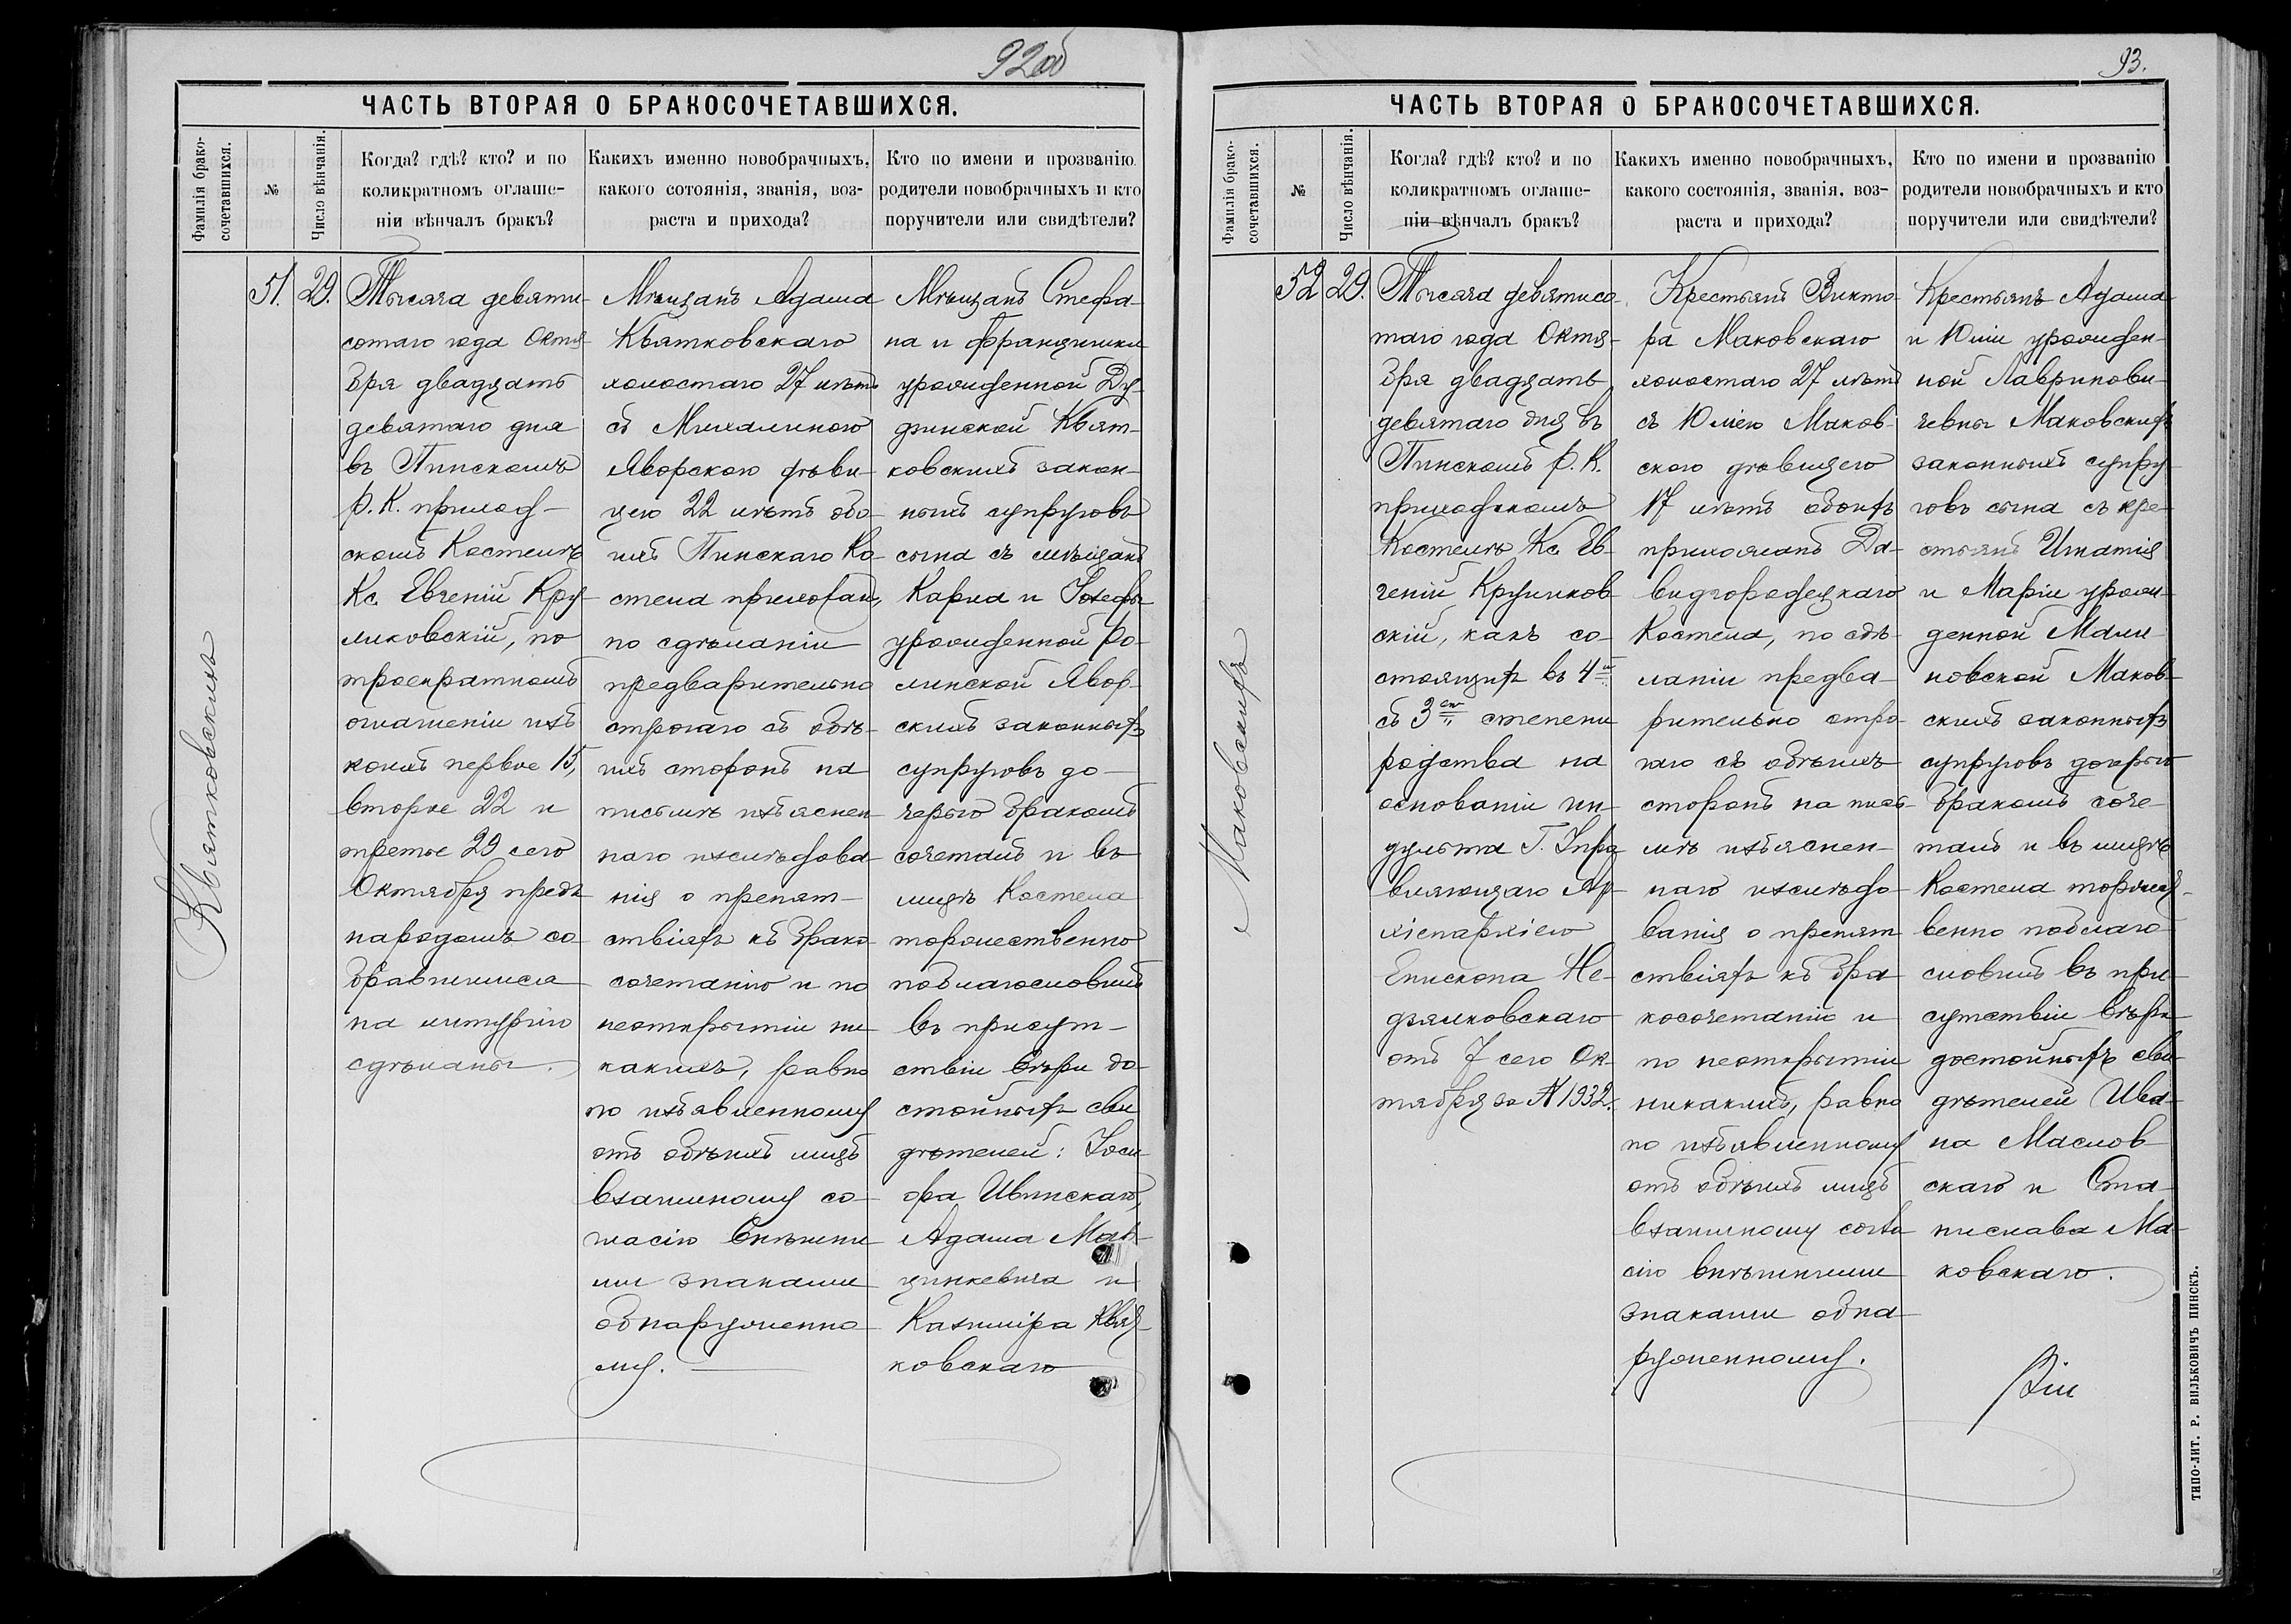 92об
ЧАСТЬ ВТОРАЯ О БРАКОСОЧЕТАВШИХСЯ.
Фамилія брако-
сочетавшихся.
№
Число вѣнчанія.
Когда? гдѣ? кто? и по
коликратномъ оглаше-
ніи вѣнчалъ бракъ?
Какихъ именно новобрачныхъ,
какого сотоянія, званія, воз-
раста и прихода?
Кто по имени и прозванію
родители новобрачныхъ и кто
поручители или свидѣтели?
Квятковскихъ
51.
29.
Тысяча девяти-
сотаго года Октя-
бря двадцать
девятаго дня
въ Пинскомъ
Р. К. приход-
скомъ Костелѣ
Кс. Евгеній Кру-
ликовскій, по
троекратномъ
оглашеніи изъ
коихъ первое 15,
второе 22 и
третье 29 сего
Октября предъ
народомъ со-
бравшимся
на литургію
сдѣланы.
Мѣщанъ Адама
Квятковскаго
холостаго 27 лѣтъ
съ Михалиною
Яворскою дѣви-
цею 22 лѣтъ обо-
ихъ Пинскаго Ко-
стела прихожан,
по сдѣланіи
предварительно
строгаго съ обѣ-
ихъ сторонъ на
письмѣ изъяснен-
наго изслѣдова-
нія о препят-
ствіяхъ къ брако-
сочетанію и по
неоткрытіи ни
какихъ, равно
по изъявленному
отъ обѣихъ лицъ
взаимному со-
гласію внѣшни-
ми знаками
обнаруженно-
му.
Мѣщанъ Стефа-
на и Францишки
урожденной Ду-
динской Квят-
ковскихъ закон-
ныхъ супруговъ
сына съ мѣщанъ
Карла и Іозефы
урожденной Ро-
линской Явор-
скихъ законныхъ
супруговъ до-
черью бракомъ
сочеталъ и въ
лицѣ Костела
торжественно
поблагословилъ
въ присут-
ствіи вѣры до-
стойныхъ сви-
дѣтелей: Іоси-
фа Ивинскаго,
Адама Мар-
цинкевича и
Казиміра Квят-
ковскаго
93.
ЧАСТЬ ВТОРАЯ О БРАКОСОЧЕТАВШИХСЯ.
Фамилія брако-
сочетавшихся.
№
Число вѣнчанія.
Когла? гдѣ? кто? и по
коликратномъ оглаше-
ніи вѣнчалъ бракъ?
Какихъ именно новобрачныхъ,
какого состоянія, званія, воз-
раста и прихода?
Кто по имени и прозванію
родители новобрачныхъ и кто
поручители или свидѣтели?
Маковскихъ
52
29.
Тысяча девятисо-
таго года Октя-
бря двадцать
девятаго дня въ
Пинскомъ Р. К.
приходскомъ
Костелѣ Кс. Ев-
геній Круликов-
скій, какъ со-
стоящихъ въ 4й
съ 3ею степени
родства на
основаніи ин-
дульта Г. Упра-
вляющаго Ар-
хіепархіею
Епископа Не-
дзялковскаго
отъ 7 сего Ок-
тября за № 1932.
Крестьянъ Викто-
ра Маковскаго
холостаго 27 лѣтъ
съ Юліею Маков-
скою дѣвицею
17 лѣтъ обоихъ
прихожанъ Да-
видгородецкаго
Костела, по сдѣ-
ланіи предва-
рительно стро-
гаго съ обѣихъ
сторонъ на пись-
мѣ изъяснен-
наго изслѣдо-
ванія о препят-
ствіяхъ къ бра-
косочетанію и
по неоткрытіи
никакихъ, равно
по изъявленному
отъ обѣихъ лицъ
взаимному согла-
сію внѣшними
знаками обна-
руженному.
Крестьянъ Адама
и Юліи урожден-
ной Лавринови-
чевны Маковскихъ
законныхъ супру-
говъ сына съ кре-
стьянъ Игнатія
и Маріи урож-
денной Мали-
новской Маков-
скихъ законныхъ
супруговъ дочерью
бракомъ соче-
талъ и въ лицѣ
Костела торжест-
венно поблаго-
словилъ въ при-
сутствіи вѣры
достойныхъ сви-
дѣтелей Ива-
на Маслов-
скаго и Ста-
нислава Ма-
ковскаго.
ТИПО-ЛИТ. Р. ВИЛЬКОВИЧЪ ПИНСКЪ.